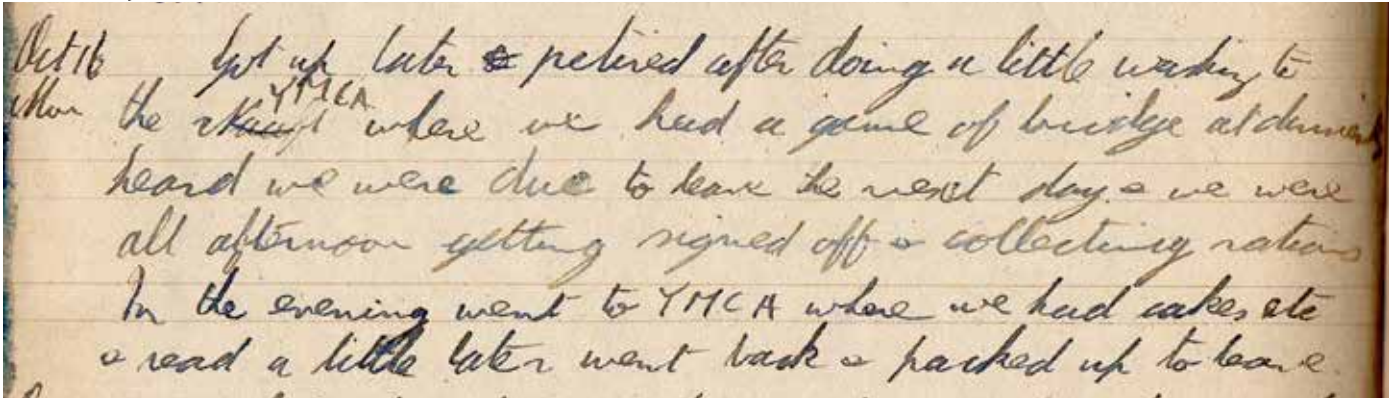 Oct 16 Got up later & retired after doing a little washing to
Mon the YMCA where we had a game of bridge at dinner
heard we were due to leave the next day & we were
all afternoon getting signed off & collecting rations
In the evening went to YMCA where we had cakes etc
& read a little later went back & packed up to leave.